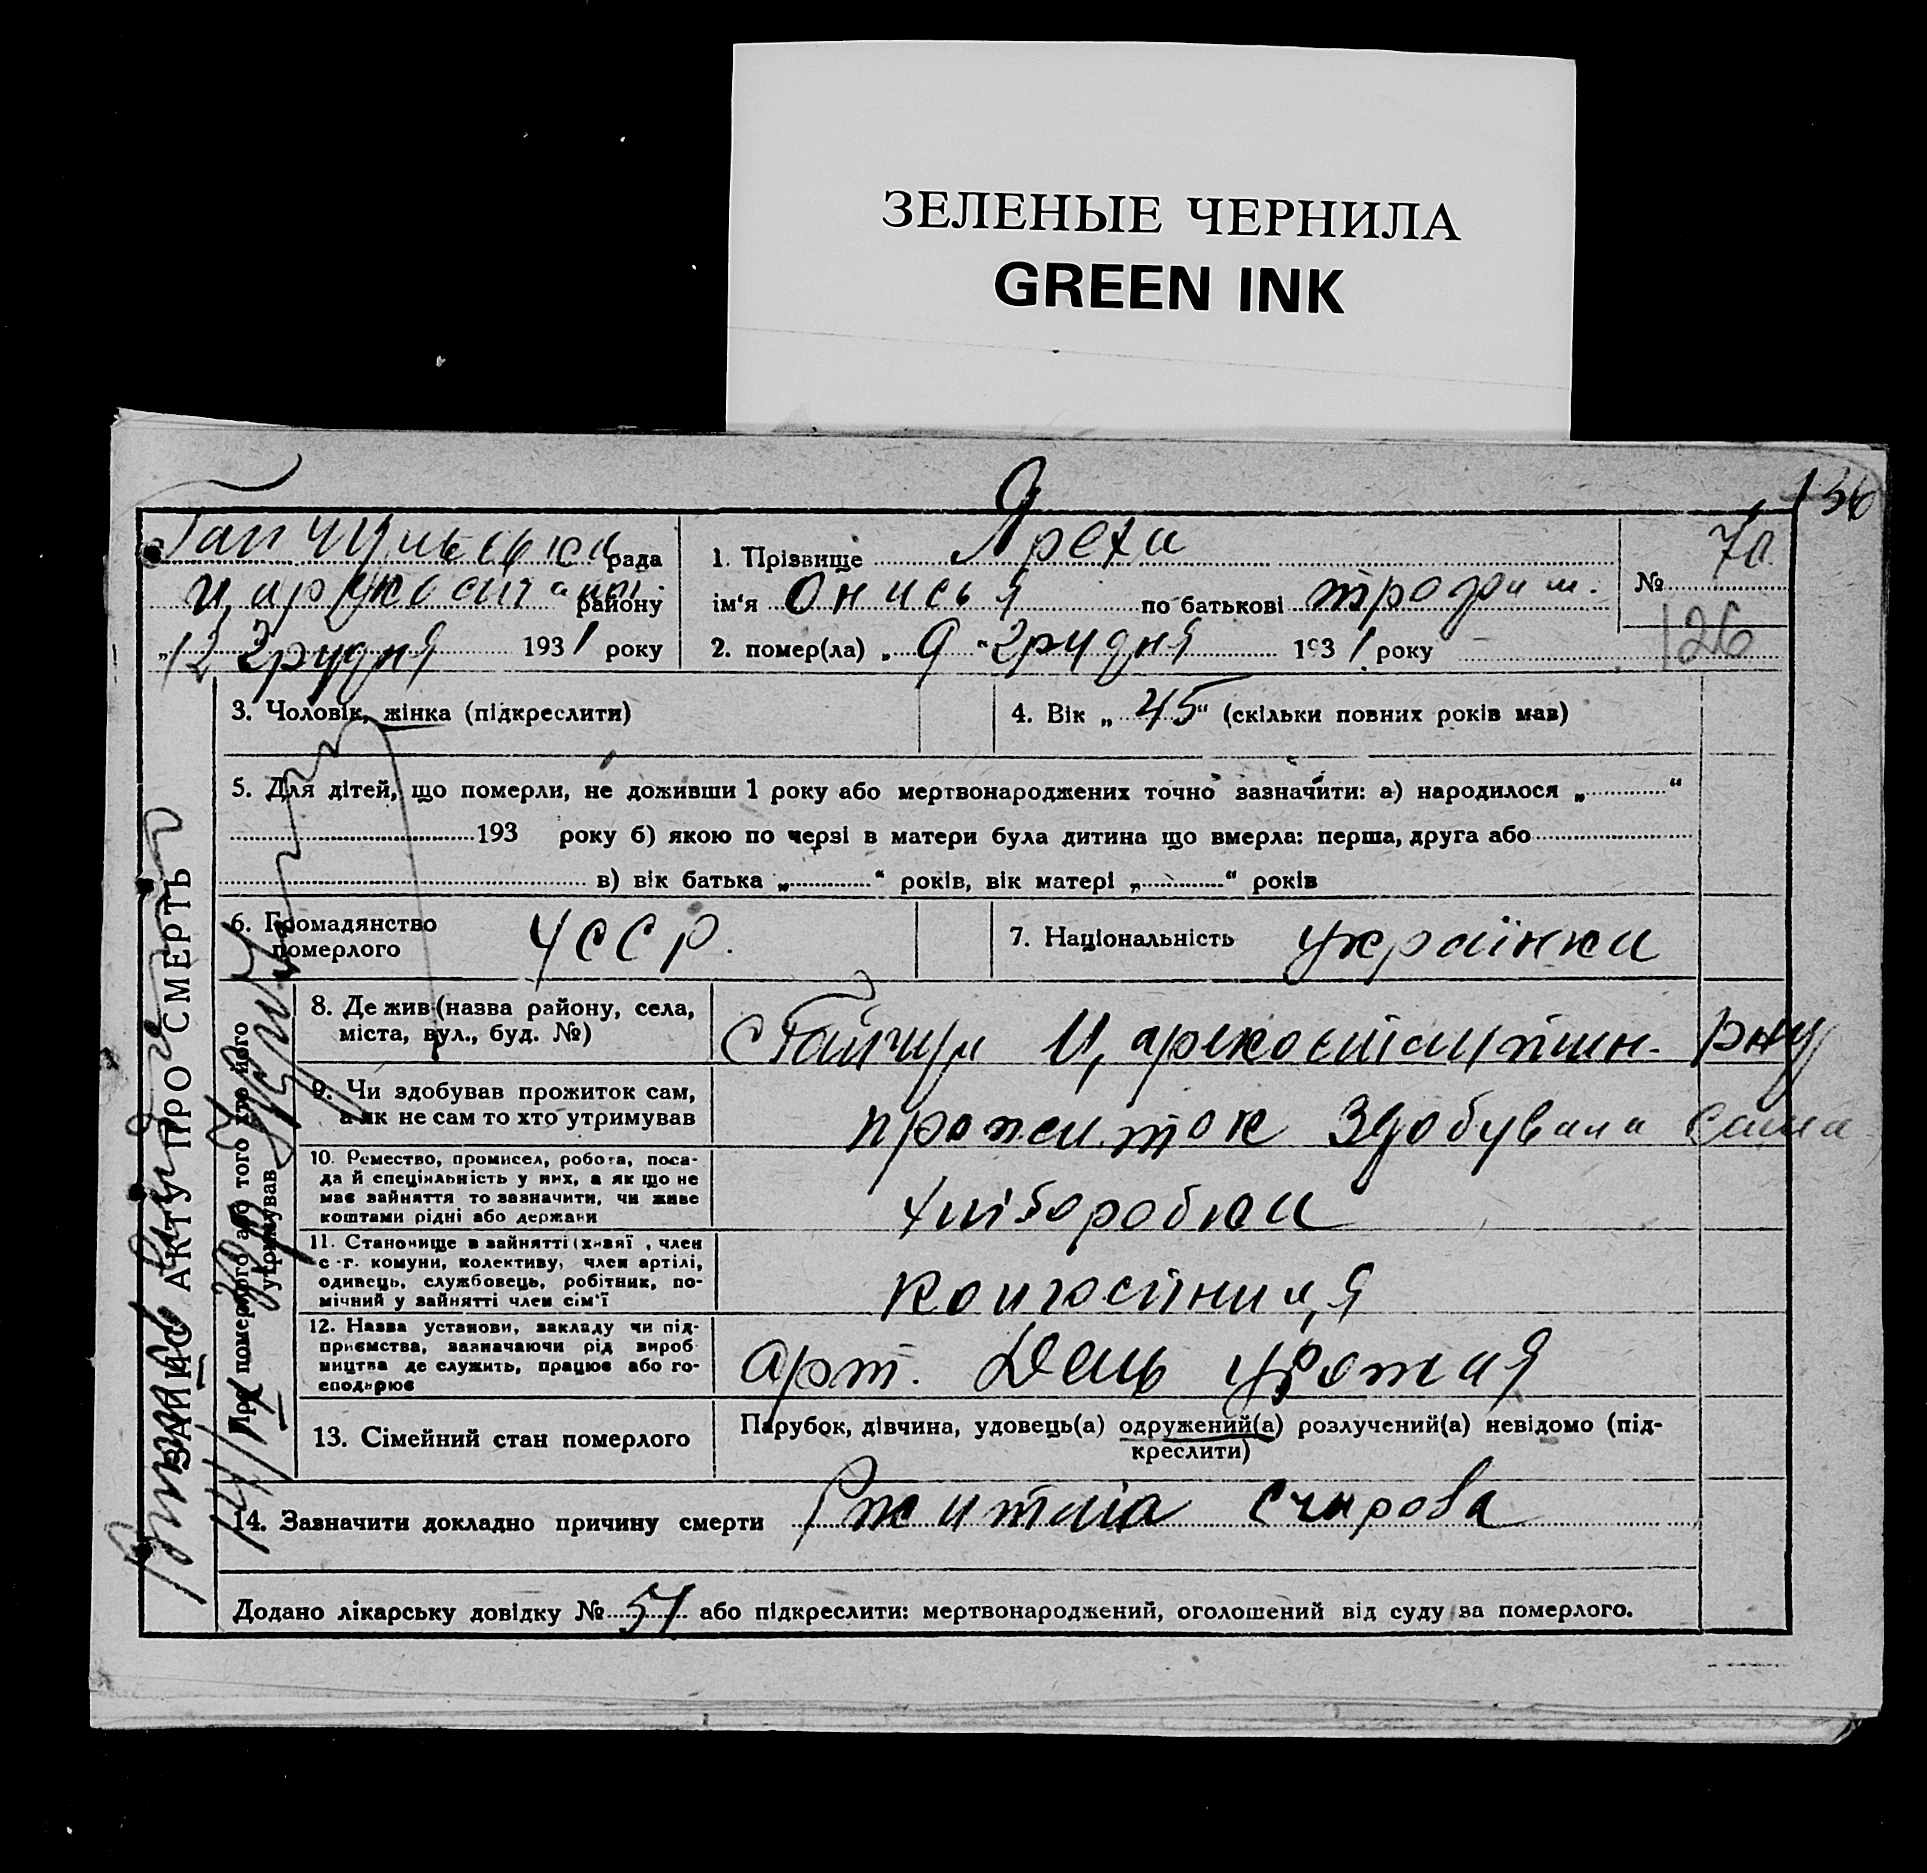 ЗЕЛЕНЫЕ ЧЕРНИЛА
GREEN INK
9
136
рада
району
„12 грудня 1931 року
1. Прізвище Ареха
ім‘я Онисья по батькові трофим.
2. помер(ла) „9“ грудня 1931 року
№
126
3. Чоловік, жінка (підкреслити)
4. Вік „45“ (скільки повних років мав)
5. Для дітей, що померли, не доживши 1 року або мертвонароджених точно зазначити: а) народилося „ “
193 року б) якою по черзі в матери була дитина що вмерла: перша, друга або
в) вік батька „ “ років, вік матері „ “ років
6. Громадянство
померлого
УССР.
7. Національність українка
ЗАПИС АКТУ ПРО СМЕРТЬ
Про померлого або того хто його
утримував
8. Де жив (назва району, села,
міста, вул., буд. №)
с Гайчул Царекостянтин. рну
9. Чи здобував прожиток сам,
а як не сам то хто утримував
прожиток здобувала сама
10. Ремество, промисел, робота, поса-
да й спеціяльність у них, а як що не
має зайняття то зазначити, чи живе
коштами рідні або держави
хліборобка
11. Становище в зайнятті (хазяї , член
с.-г. комуни, колективу, член артілі,
одинець, службовець, робітник, по-
мічний у зайнятті член сім‘ї
колгоспниця
12. Назва установи, закладу чи під-
приємства, зазначаючи рід вироб
ництва де служить, працює або го-
сподарює
арт. День урожая
13. Сімейний стан померлого
Парубок, дівчина, удовець(а) одружений(а) розлучений(а) невідомо (під-
креслити)
14. Зазначити докладно причину смерти
Додано лікарську довідку № 57 або підкреслити: мертвонароджений, оголошений від суду за померлого.